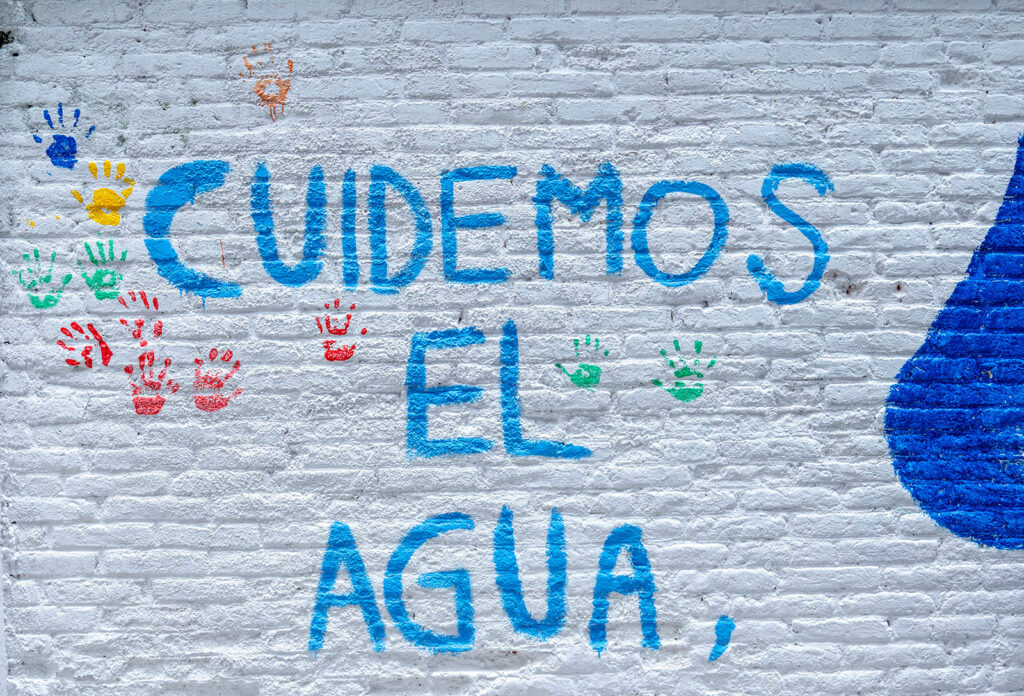 CUIDEMOS
EL
AGUA,